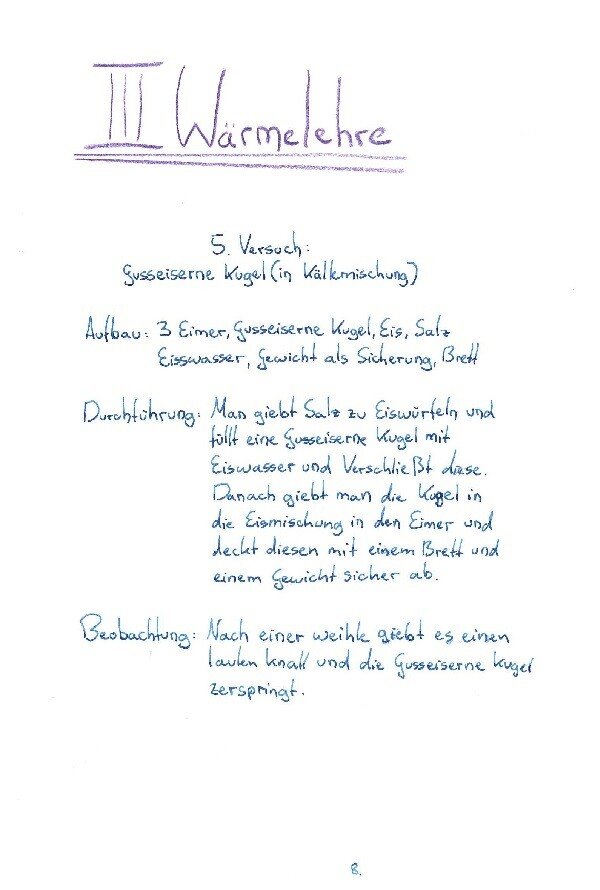 III Wärmelehre
5. Versuch:
Gusseiserne Kugel (in Kältemischung)
Aufbau: 3 Eimer, Gusseiserne Kugel, Eis, Salz
Eisswasser, Gewicht als Sicherung, Brett
Durchführung: Man giebt Salz zu Eiswürfeln und
füllt eine Gusseiserne Kugel mit
Eiswasser und Verschließt diese.
Danach giebt man die Kugel in
die Eismischung in den Eimer und
deckt diesen mit einem Brett und
einem Gewicht sicher ab.
Beobachtung: Nach einer weihle giebt es einen
lauten Knall und die Gusseiserne Kugel
zerspringt.
8.